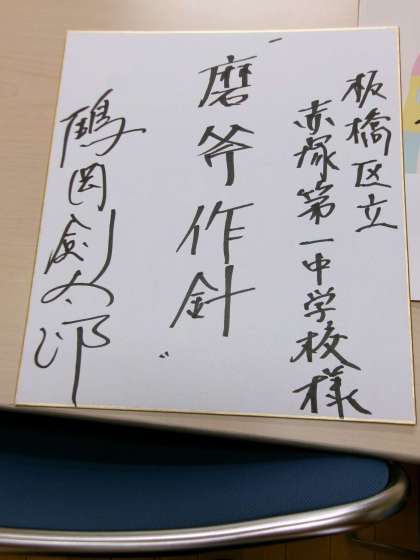 板橋区立
赤塚第一中学校様
〝磨斧作針〟
鶴岡剣太郎